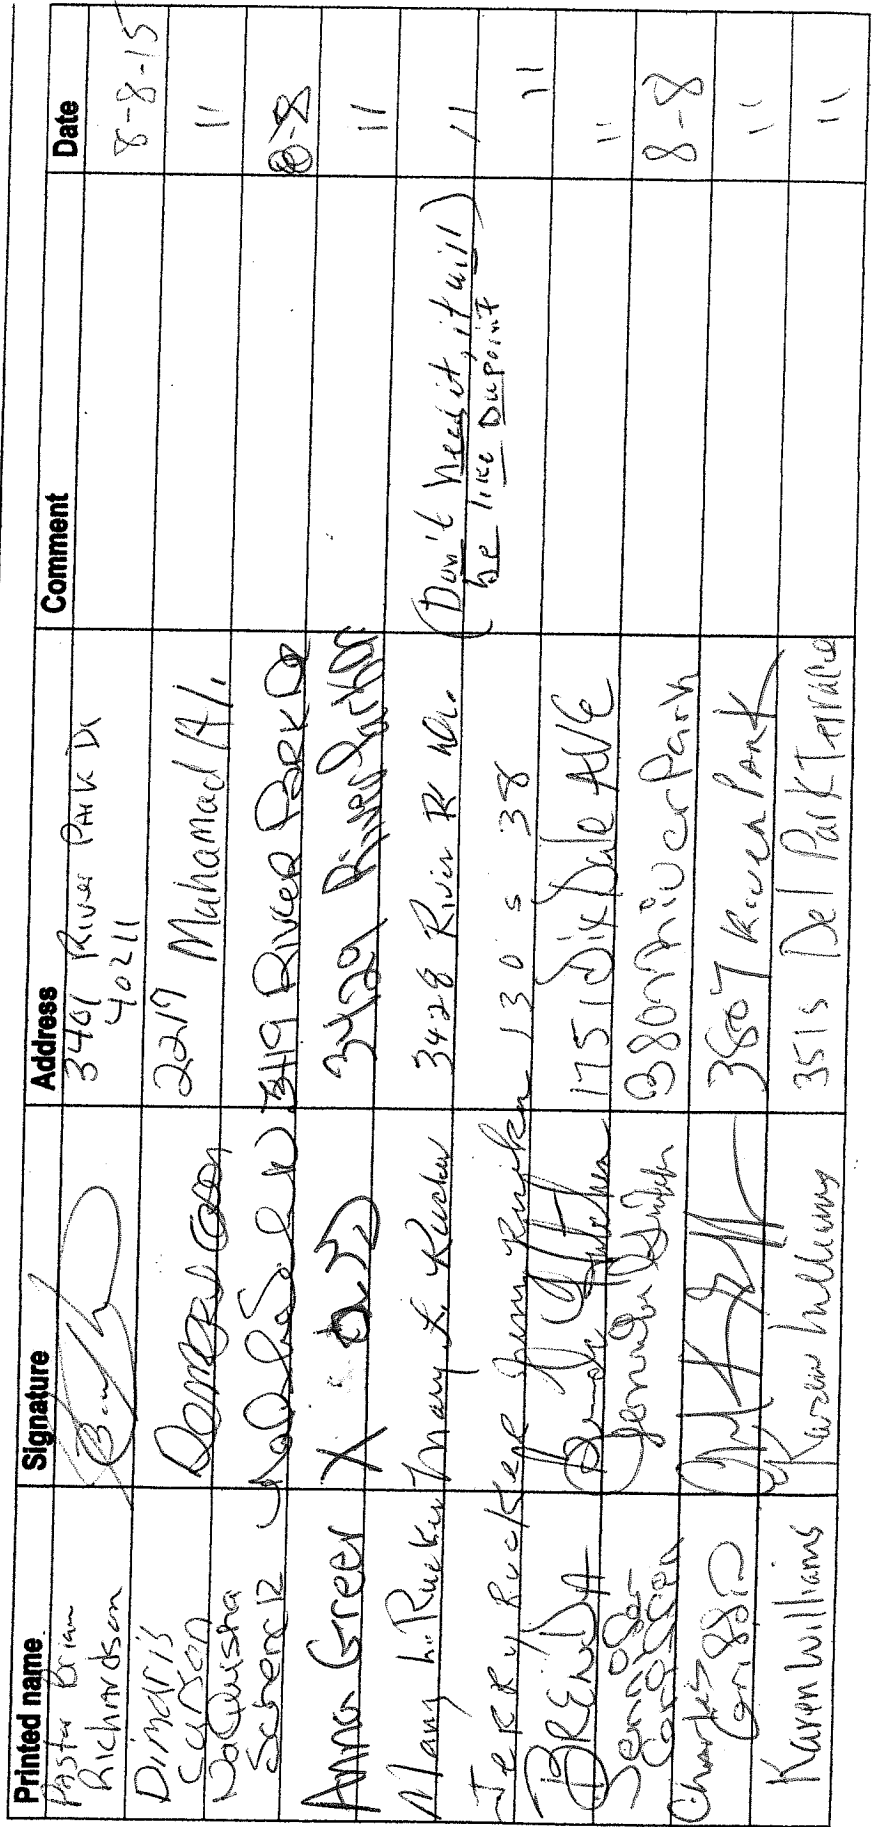 Printed name Signature Address Comment Date
Pastor Brian
Richardson 3401 River PARK Dr
40211 8-8-15
Dimaris 2217 Muhamad Al. 11
NaQuisha
Schenck 3419 River Park Dr 8-8
Anna Greer X 3429 River Park Dr 11
Mary L. Rucker Mary L. Rucker 3428 River Pk Dr. (Don't need it, it will)
be like Dupoint 11
JERRY RUCKER 130 s 38 11
BRENDA 1751 Dixdale AVE 11
River Park 8-8
Charles
Griffin 3807 River PARK 11
Karen Williams Karen Williams 3515 Del Park Terrace 11